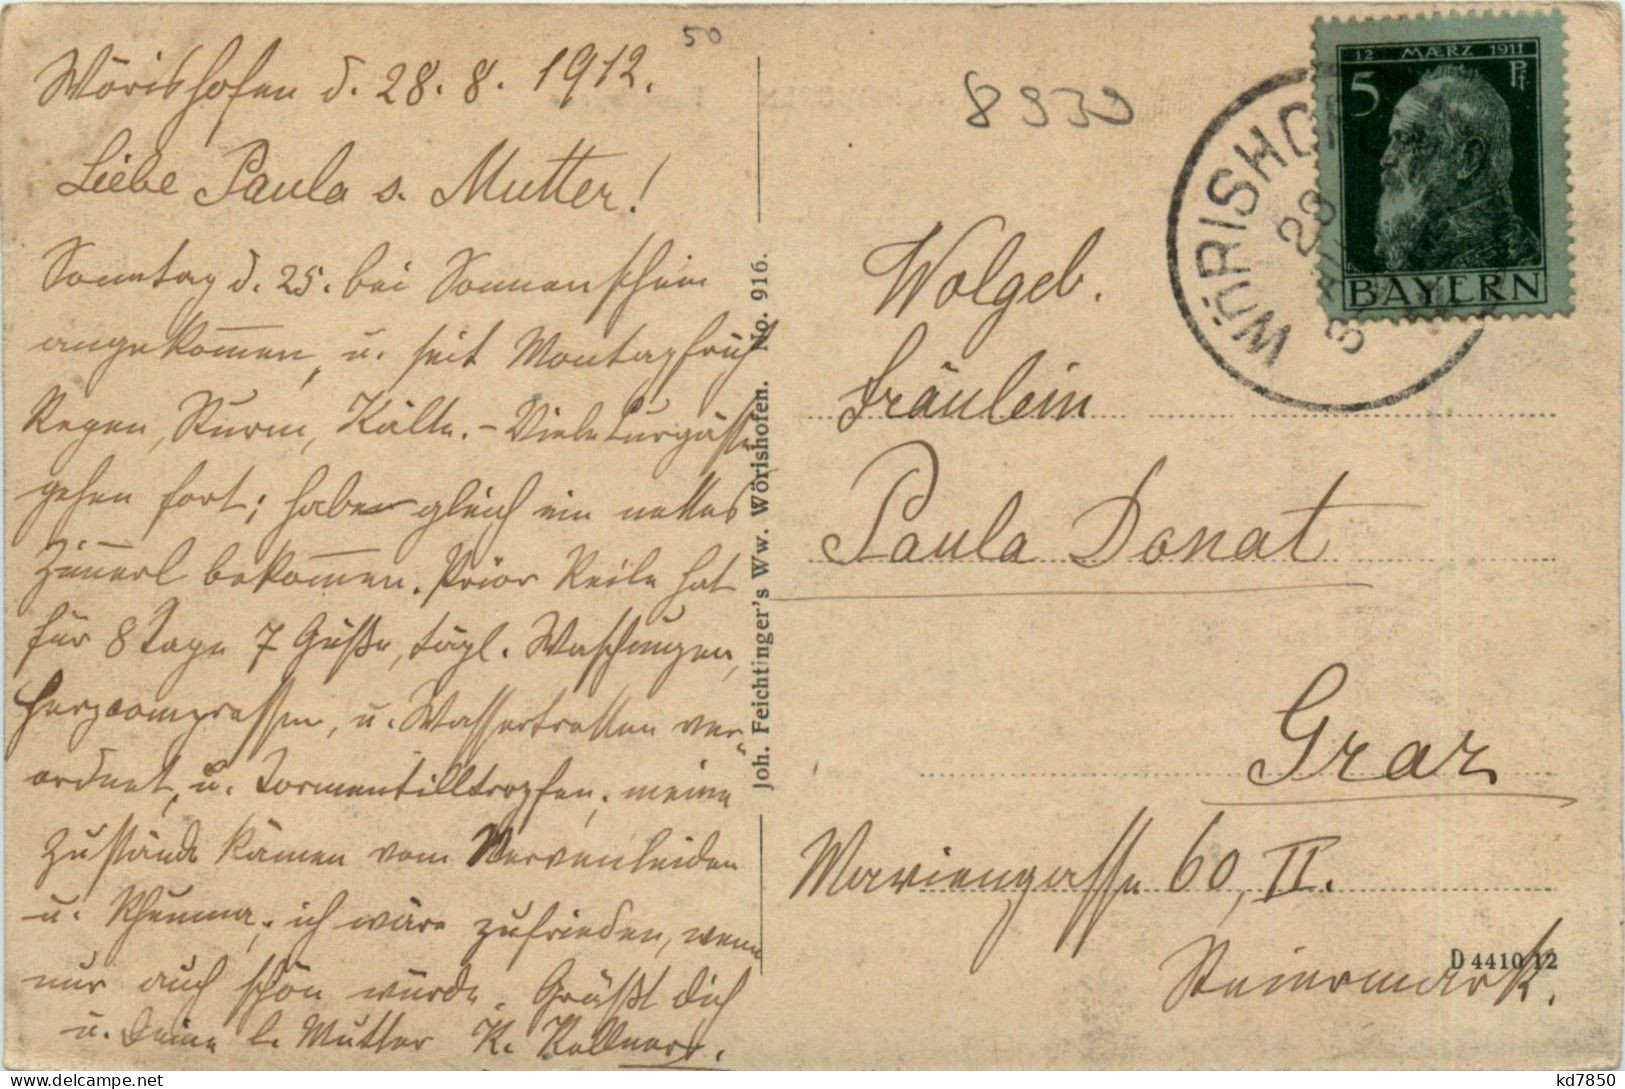 50
Wörishofen d. 28. 8. 1912.
Liebe Paula s. Mutter!
Sonntag d. 25. bei Sonnenschein
angekom̅en, u. seit Montagfrüh
Regen, Sturm, Kälte. – Viele Curgäste
gehen fort; habe gleich ein nettes
Zim̅erl bekom̅en. Prior Reile hat
für 8 Tage 7 Güße, tägl. Waschungen,
Herzcompressen, u. Wassertretten ver-
ordnet, u. Tormentilltropfen; meine
Zustände kämen vom Nervenleiden
u. Rheuma; ich wäre zufrieden, wenn
nur auch schön würde. Grüßt dich
u. Deine l. Mutter K. Kellner.
Joh. Feichtinger's Ww. Wörishofen. No. 916.
8930
WÖRISHO
28
12 MÆRZ 1911
5 Pf
BAYERN
Wolgeb.
Fräulein
Paula Donat
Graz
Mariengasse 60, II.
Steiermark.
D 4410 12
kd7850